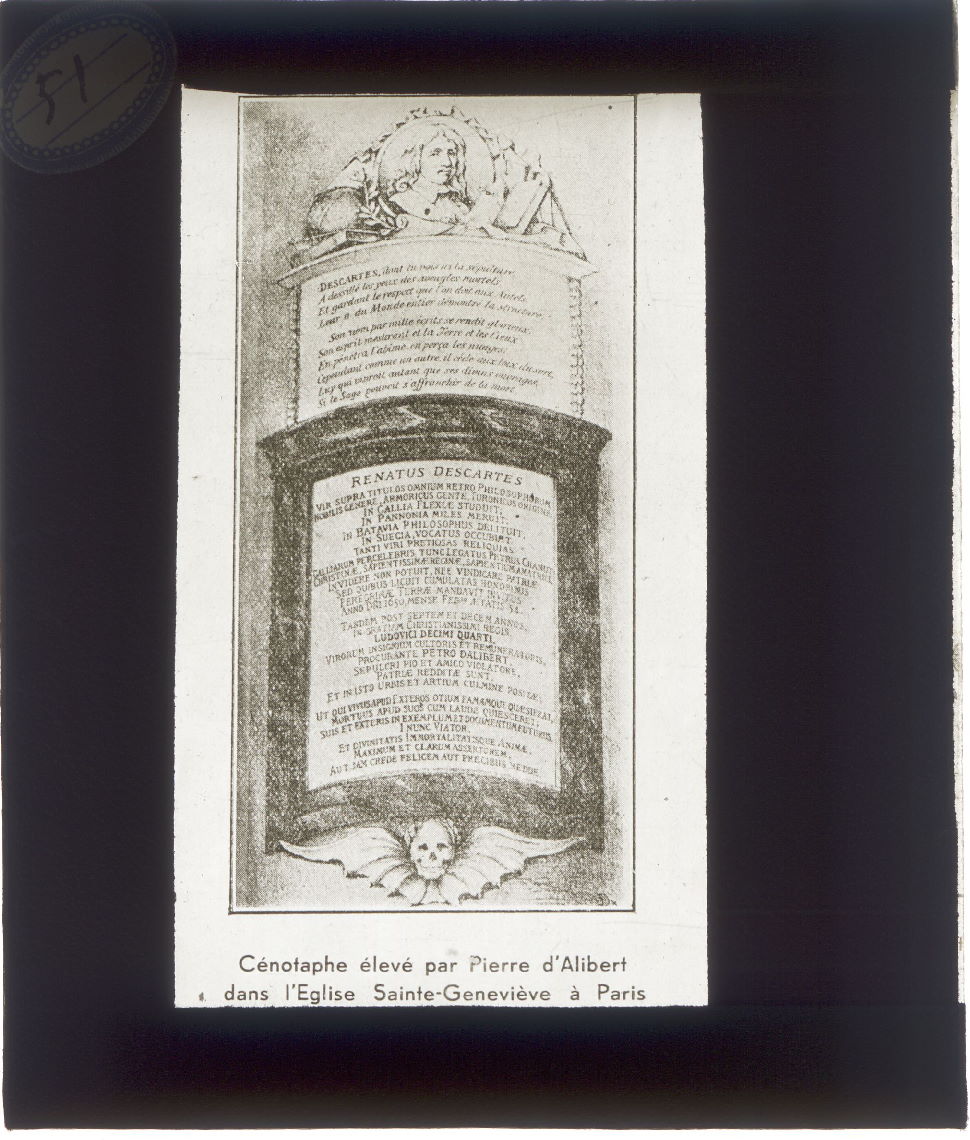 51
DESCARTES, dont tu vois ici la sépulture
A desillé les yeux des aveugles mortels
Et gardant le respect que l'on doit aux Autels,
Leur a du Monde entier demontré la structure.
Son nom par mille écrits se rendit glorieux,
Son esprit mesurant et la Terre et les Cieux
En pénétra l'abîme, en perça les nuages;
Cependant comme un autre, il cède aux loix du sort,
Luy qui vivroit autant que ses divins ouvrages,
Si le Sage pouvoit s'affranchir de la mort.
RENATUS DESCARTES
VIR SUPRA TITULOS OMNIUM RETRO PHILOSOPHORUM,
NOBILIS GENERE, ARMORICUS GENTE, TURONICUS ORIGINE,
IN GALLIA FLEXIÆ STUDUIT;
IN PANNONIA MILES MERUIT;
IN BATAVIA PHILOSOPHUS DELITUIT;
IN SUECIA, VOCATUS OCCUBUIT.
TANTI VIRI PRETIOSAS RELIQUIAS
GALLIARUM PERCELEBRIS TUNC LEGATUS PETRUS CHANUT
CHRISTINÆ, SAPIENTISSIMÆ REGINÆ, SAPIENTIUM AMATRICI,
INVIDERE NON POTUIT, NEC VINDICARE PATRIÆ
SED QUIBUS LICUIT CUMULATAS HONORIBUS
PEREGRINÆ TERRÆ MANDAVIT INVITUS
ANNO DNI 1650, MENSE FEBR. ÆTATIS 54.
TANDEM POST SEPTEM ET DECEM ANNOS,
IN GRATIAM CHRISTIANISSIMI REGIS
LUDOVICI DECIMI QUARTI,
VIRORUM INSIGNIUM CULTORIS ET REMUNERATORIS,
PROCURANTE PETRO DALIBERT,
SEPULCRI PIO ET AMICO VIOLATORE,
PATRIÆ REDDITÆ SUNT,
ET IN ISTO URBIS ET ARTIUM CULMINE POSITÆ;
UT QUI VIVUS APUD EXTEROS OTIUM FAMAMQUE QUÆSIERAT,
MORTUUS APUD SUOS CUM LAUDE QUIESCERET,
SUIS ET EXTERIS IN EXEMPLUM ET DOCUMENTUM FUTURUS.
I NUNC VIATOR,
ET DIVINITATIS IMMORTALITATISQUE ANIMÆ,
MAXIMUM ET CLARUM ASSERTOREM,
AUT JAM CREDE FELICEM AUT PRECIBUS REDDE
Cénotaphe élevé par Pierre d'Alibert
dans l'Eglise Sainte-Geneviève à Paris